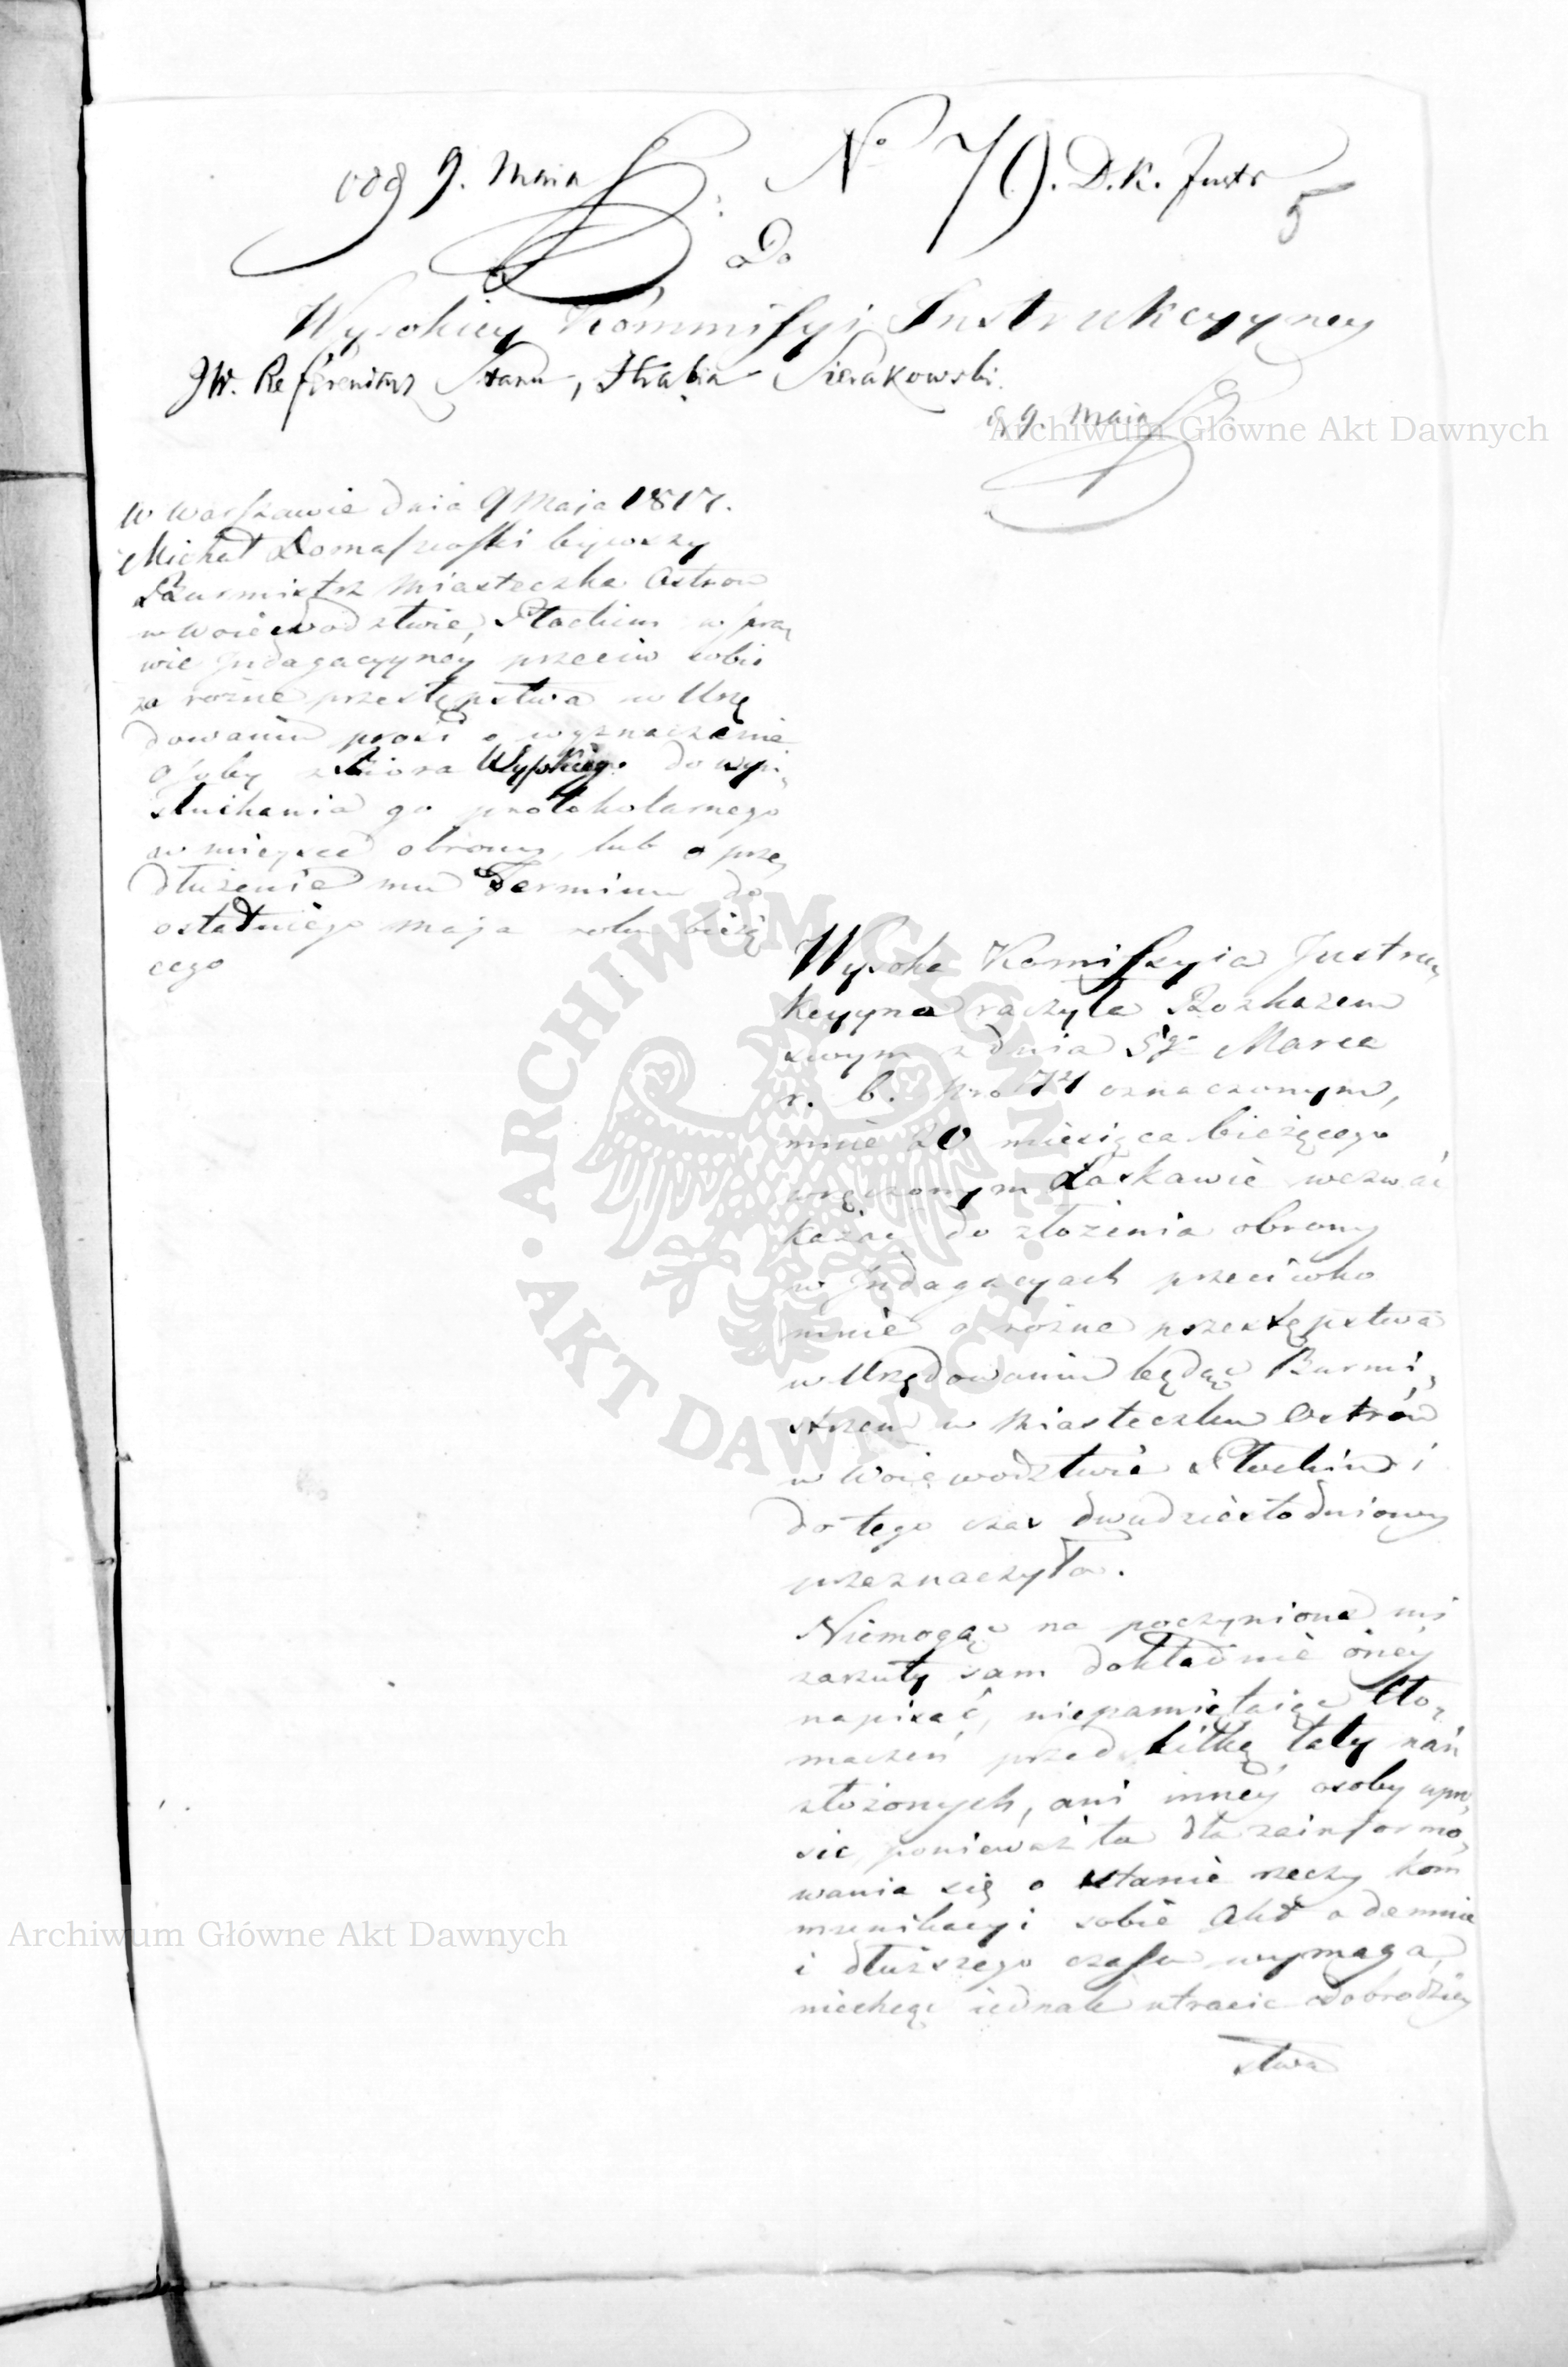 odg 9. Maia
No 79. D.K. Instr
5
Do
Wysokiey Kommissyi Instrukcyyney
JW. Referendarz Stanu, Hrabia Sierakowski.
9. Maia
Archiwum Główne Akt Dawnych
W Warszawie dnia 9 Maja 1817.
Michał Domaszewski bywszy
Burmistrz Miasteczka Ostrow
w Woiewodztwie Płockim w spra,
wie Indagacyyney przeciw sobie
za rożne przestępstwa w Urzę
dowaniu prosi o wyznaczenie
Osoby z do wy,
słuchania go protokolarnego
w mieysce obrony, lub o prze,
dłużenie mu Terminu do
ostatniego Maja roku bieżą
cego
Wysoka Komissyia Instru,
kcyyna raczyła Rozkazem
swym z dnia 5go Marca
r. b. Nro 74 oznaczonym,
mnie 20 miesiąca bieżącego
wręczonym Łaskawie wezwać
każąc do złożenia obrony
w Indagacyach przeciwko
mnie o rożne przestępstwa
w Urzędowaniu będąc Burmi,
strzem w Miasteczku Ostrów
w Woiewodztwie Płockim i
do tego czas dwudziestodniowy
przeznaczyła.
Niemogąc na poczynione mi
zarzuty sam dokładnie oney
napisać, niepamiętaiąc tło,
maczeń przed kilką laty nań
złożonych, ani inney osoby upro,
sic, ponieważ ta dla zainformo,
wania się o stanie rzeczy kom
munikacyi sobie Akt odemnie
i dłuższego czasu wymaga,
niechcąc iednak utracic Dobrodziey
stwa
Archiwum Główne Akt Dawnych
ARCHIWUM GŁÓWNE
AKT DAWNYCH